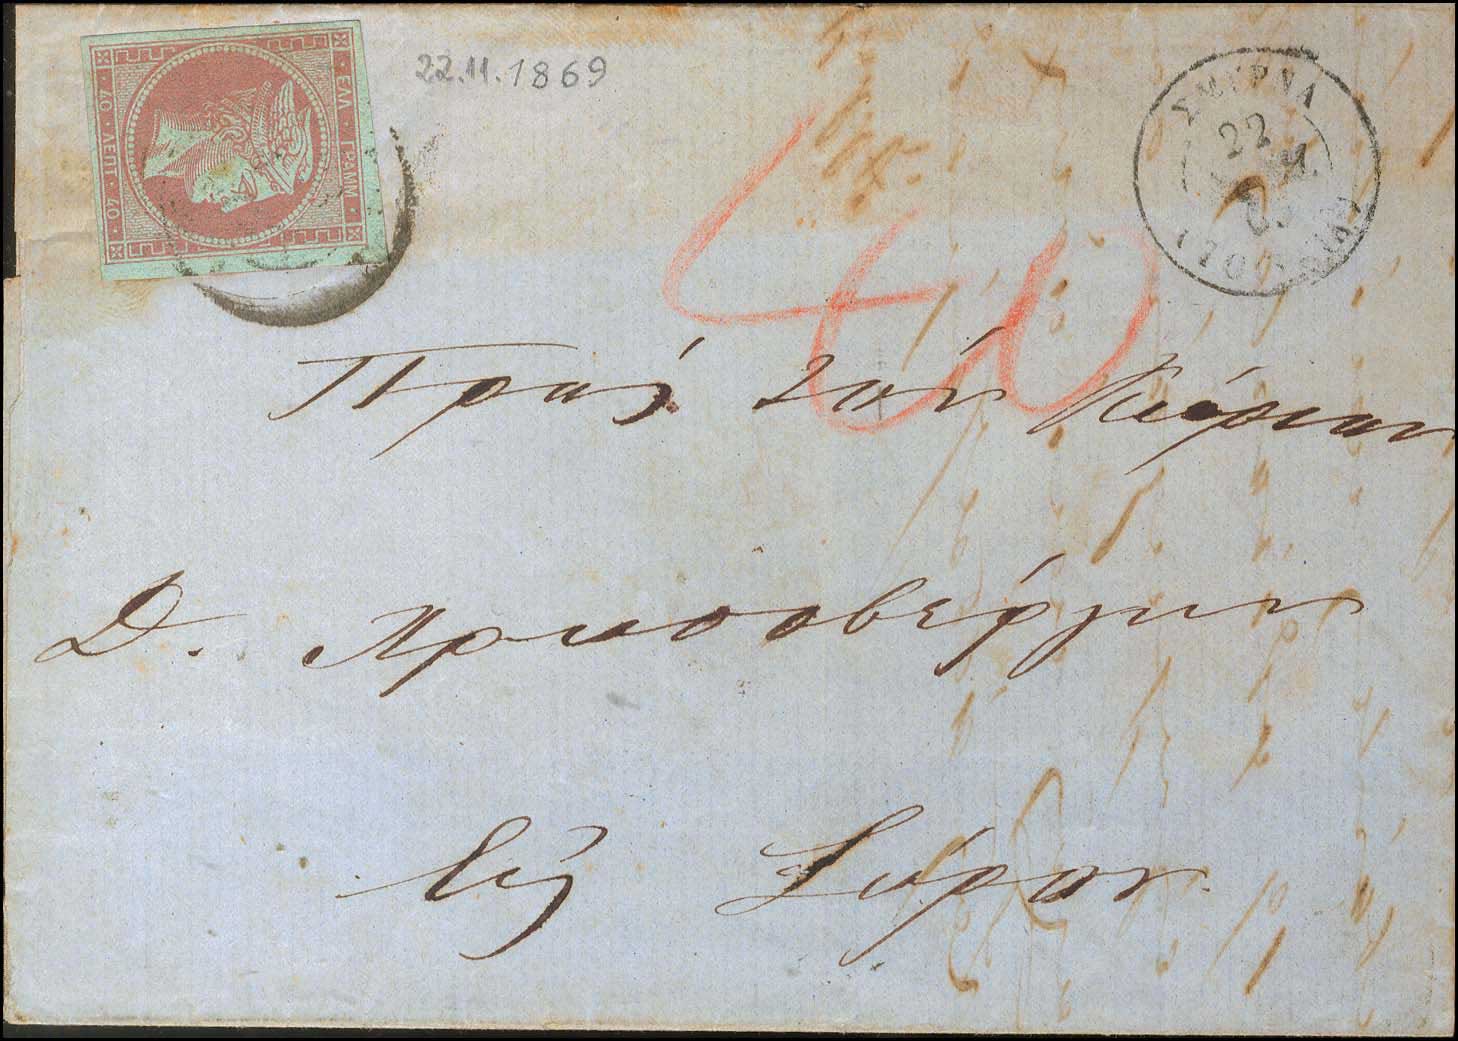 ΕΛΛ · ΓΡΑΜΜ
40 · ΛΕΠΤ · 40
22.11.1869
ΣΜΥΡΝΑ
22
40
Πρὸς τὸν Κύριον
Δ. Χρυσοβέργην
Εἰς Σύρον